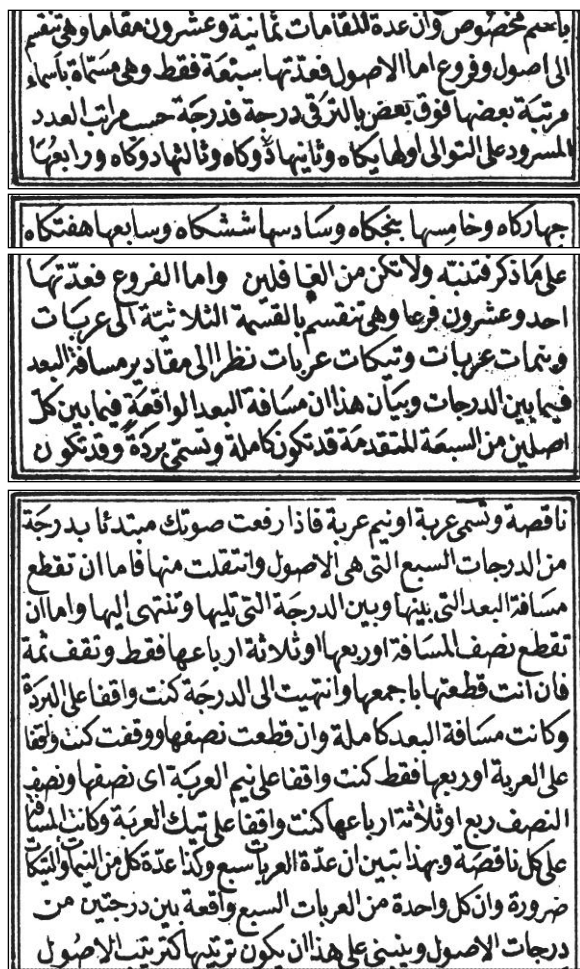 باسم مخصوص وان عدة المقامات ثمانية وعشرون مقاما وهي تنقسم
الى اصول وفروع اما الاصول فعدتها سبعة فقط وهي مسماة باسماء
مرتبة بعضها فوق بعض بالترقى درجة فدرجة حسب مراتب العدد
المسرود على التوالى اولها يكاه وثانيها دوكاه وثالثها دوكاه ورابعها
جهاركاه وخامسها پنجكاه وسادسها ششكاه وسابعها هفتكاه
على ماذكر فتنبه ولا تكن من الغافلين واما الفروع فعدتها
احد وعشرون فرعا وهي تنقسم بالقسمة الثلاثية الى عربات
ونيمات عربات وتيكات عربات نظرا الى مقادير مسافة البعد
فيما بين الدرجات وبيان هذا ان مسافة البعد الواقعة فيما بين كل
اصلين من السبعة المتقدمة قد تكون كاملة وتسمى بردة وقد تكون
ناقصة وتسمى عربة او نيم عربة فاذا رفعت صوتك مبتدئا بدرجة
من الدرجات السبع التى هى الاصول وانتقلت منها فاما ان تقطع
مسافة البعد التى بينها وبين الدرجة التى تليها وتنتهى اليها واما ان
تقطع نصف المسافة او ربعها او ثلاثة ارباعها فقط وتقف ثمة
فان انت قطعتها باجمعها وانتهيت الى الدرجة كنت واقفا على البردة
وكانت مسافة البعد كاملة وان قطعت نصفها ووقفت كنت واقفا
على العربة او ربعها فقط كنت واقفا على نيم العربة اى نصفها ونصف
النصف ربع او ثلاثة ارباعها كنت واقفا على تيك العربة وكانت المسافة
على كل ناقصة وبهذا تبين ان عدة العربات سبع وكذا عدة كل من النيمات والتيكات
ضرورة وان كل واحدة من العربات السبع واقعة بين درجتين من
درجات الاصول وينبنى على هذا ان يكون ترتيبها كترتيب الاصول